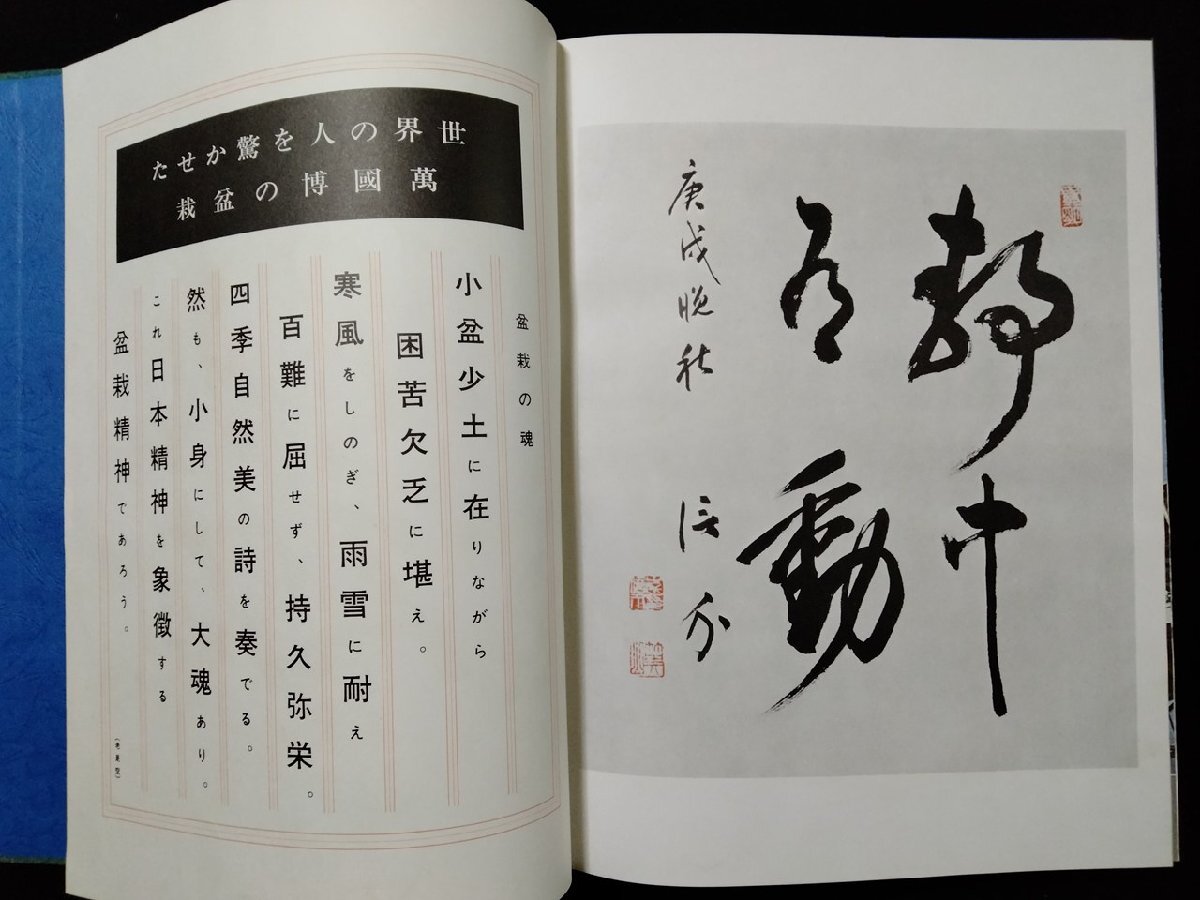 静中
有動
庚戌晩秋 信介
世界の人を驚かせた
萬國博の盆栽
盆栽の魂
小盆少土に在りながら
困苦欠乏に堪え。
寒風をしのぎ、雨雪に耐え
百難に屈せず、持久弥栄。
四季自然美の詩を奏でる。
然も、小身にして、大魂あり。
これ日本精神を象徴する
盆栽精神であろう。